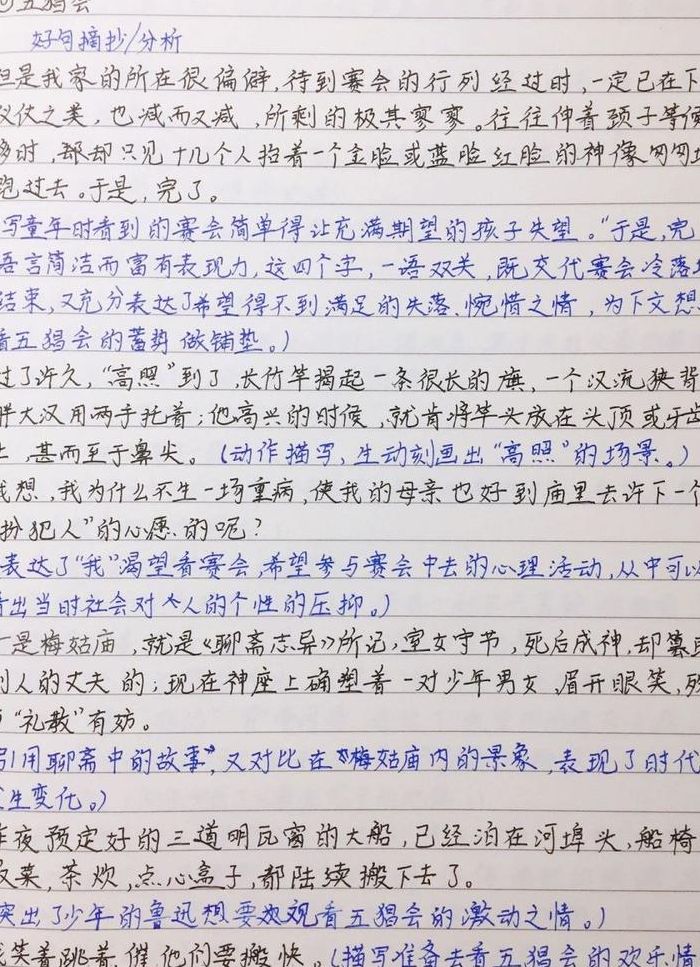 五猖会
好句摘抄/分析
但是我家的所在很偏僻,待到赛会的行列经过时,一定已在下
仪仗之类,也减而又减,所剩的极其寥寥。往往伸着颈子等候
多时,都却只见十几个人抬着一个金脸或蓝脸红脸的神像匆匆地
跑过去。于是,完了。
写童年时看到的赛会简单得让充满期望的孩子失望。“于是,完
语言简洁而富有表现力,这四个字,一语双关,既交代赛会冷落地
结束,又充分表达了希望得不到满足的失落、惋惜之情,为下文想
看五猖会的蓄势做铺垫。)
过了许久,“高照”到了,长竹竿揭起一条很长的旗,一个汉流狭背
胖大汉用两手托着;他高兴的时候,就肯将竿头放在头顶或牙齿
上,甚而至于鼻尖。(动作描写,生动刻画出“高照”的场景。)
我想,我为什么不生一场重病,使我的母亲也好到庙里去许下一个
“扮犯人”的心愿的呢?
表达了“我”渴望看赛会,希望参与赛会中去的心理活动,从中可以
看出当时社会对人的个性的压抑。)
一是梅姑庙,就是《聊斋志异》所记,室女守节,死后成神,却篡取
别人的丈夫的;现在神座上确塑着一对少年男女,眉开眼笑,殊
与“礼教”有妨。
引用聊斋中的故事,又对比在梅姑庙内的景象,表现了时代
发生变化。)
昨夜预定好的三道明瓦窗的大船,已经泊在河埠头,船椅
饭菜,茶炊,点心盒子,都陆续搬下去了。
突出了少年的鲁迅想要观看五猖会的激动之情。)
我笑着跳着,催他们要搬快。(描写准备去看五猖会的欢乐情